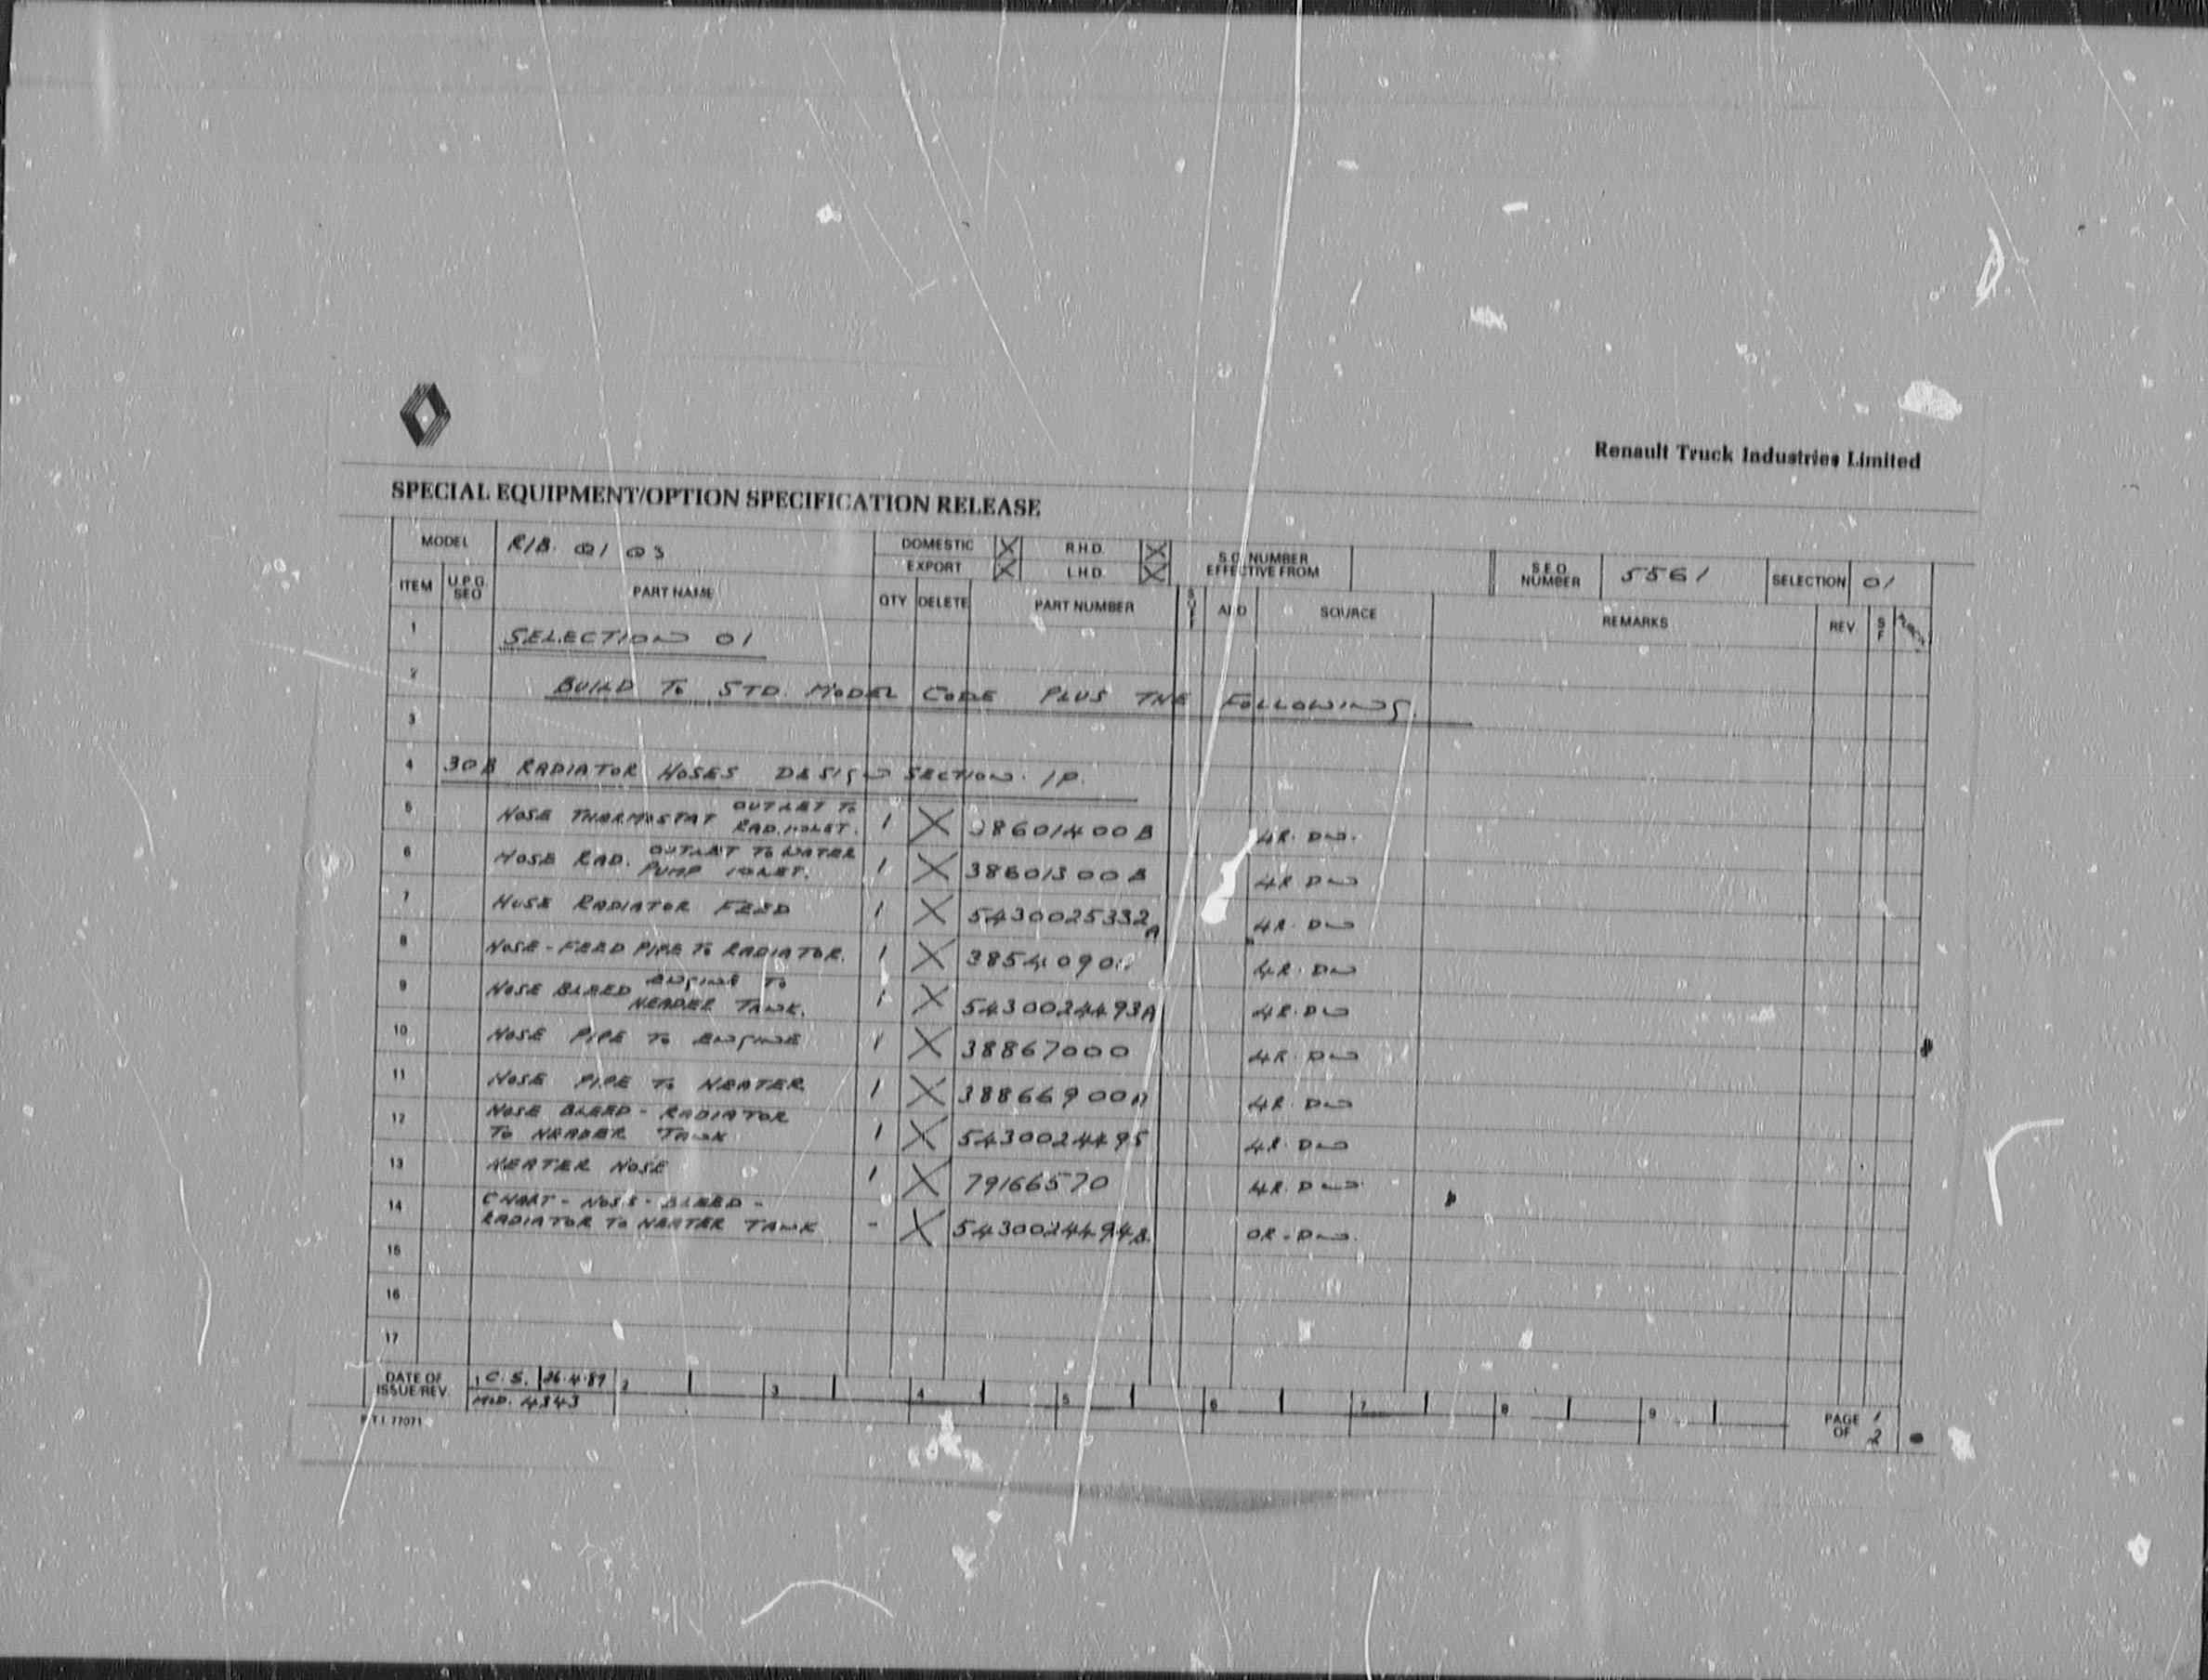 Renault Truck Industries Limited
SPECIAL EQUIPMENT/OPTION SPECIFICATION RELEASE
MODEL R1B. 01 03 DOMESTIC X R.H.D. X S.O. NUMBER EFFECTIVE FROM S.E.O. NUMBER 5561 SELECTION 01
EXPORT X L.H.D. X
ITEM U.P.G. SEQ PART NAME QTY DELETE PART NUMBER SUFF SOURCE REMARKS REV SF
1 SELECTION 01
2 BUILD TO STD. MODEL CODE PLUS THE FOLLOWING.
3
4 30B RADIATOR HOSES DESIGN SECTION. 1P.
5 HOSE THERMOSTAT OUTLET TO RAD. INLET. 1 X 38601400B 4R. DW.
6 HOSE RAD. OUTLET TO WATER PUMP INLET. 1 X 38601300B 4R DW
7 HOSE RADIATOR FEED 1 X 5430025332A 4R. DW
8 HOSE - FEED PIPE TO RADIATOR. 1 X 4R. DW
9 HOSE BLEED ENGINE TO HEADER TANK. 1 X 5430024493A 4R. DW
10 HOSE PIPE TO ENGINE 1 X 38867000 4R. DW
11 HOSE PIPE TO HEATER 1 X 4R. DW
12 HOSE BLEED - RADIATOR TO HEADER TANK 1 X 5430024495 4R. DW
13 HEATER HOSE 1 X 79166570 4R. DW.
14 CHART - HOSE - BLEED - RADIATOR TO HEATER TANK - X 5430024494B. OR - DW.
15
16
17
DATE OF ISSUE/REV. 1 C. S. 26.4.89 2 3 4 5 6 7 8 9 PAGE 1 OF 2
MOD. 4343
R.T.I. 77071